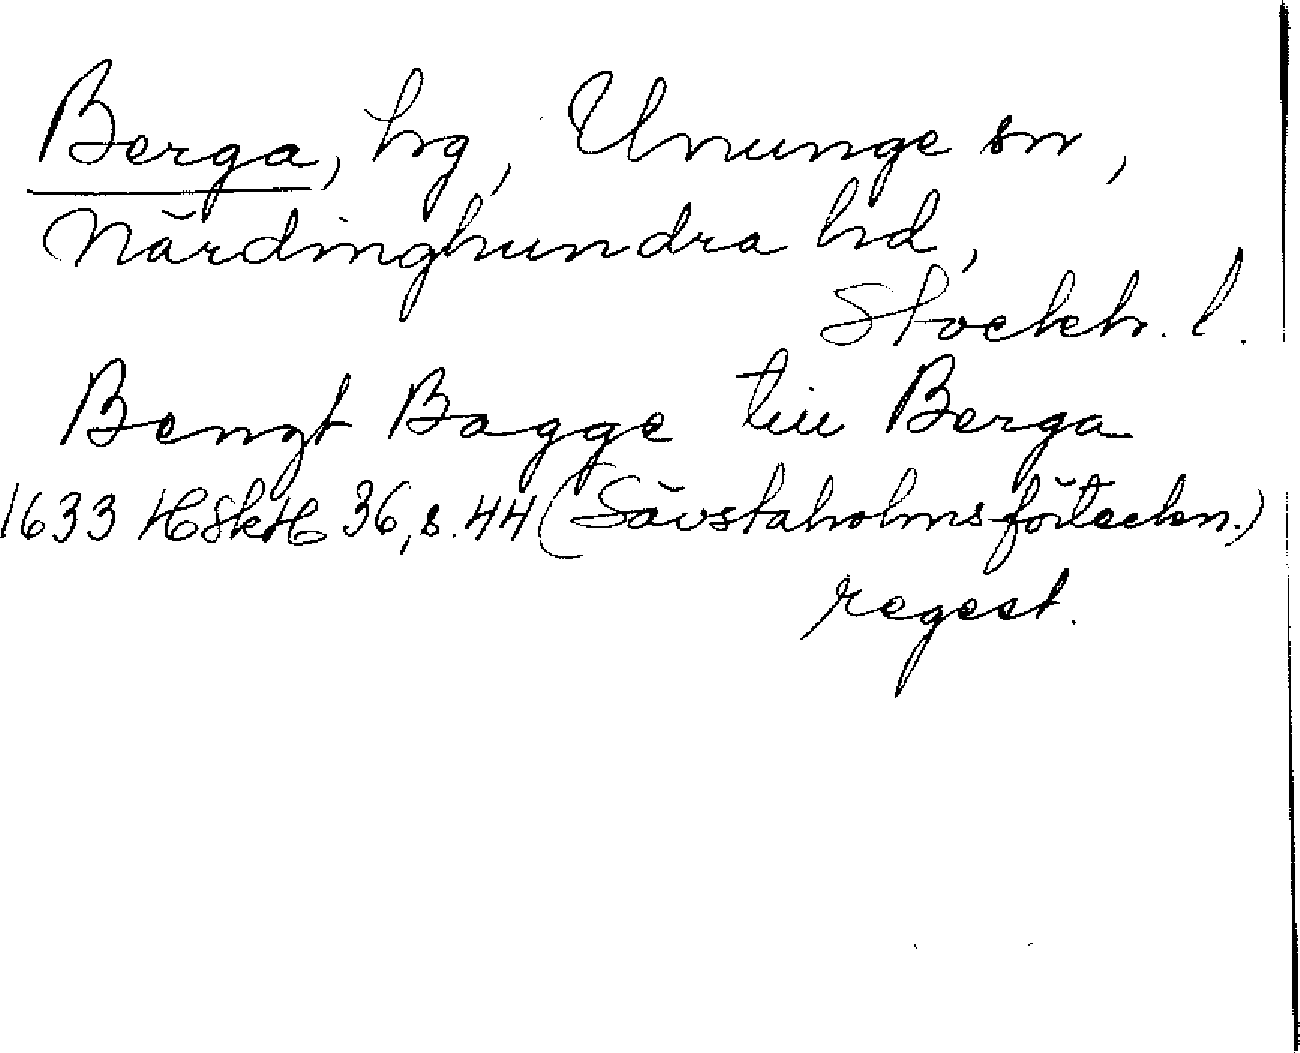 Berga, hg, Ununge sn,
Närdinghundra hd,
Stockh. l.
Bengt Bagge till Berga
1633 HSkH 36, s. 44 (Sävstaholmsförteckn.)
regest.